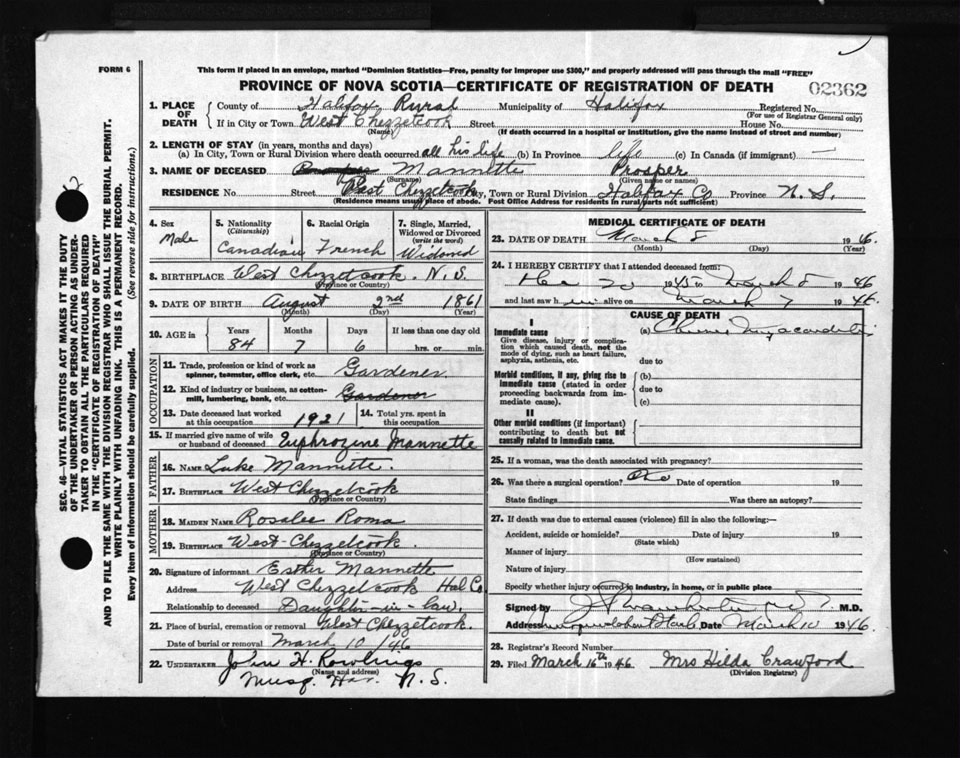 FORM 6
This form if placed in an envelope, marked "Dominion Statistics—Free, penalty for improper use $300," and properly addressed will pass through the mail "FREE"
PROVINCE OF NOVA SCOTIA—CERTIFICATE OF REGISTRATION OF DEATH
02362
1. PLACE OF DEATH County of Halifax Rural Municipality of Halifax Registered No.
(For use of Registrar General only)
If in City or Town West Chezzetcook Street House No.
(Name) (If death occurred in a hospital or institution, give the name instead of street and number)
2. LENGTH OF STAY (in years, months and days)
(a) In City, Town or Rural Division where death occurred all his life (b) In Province life (c) In Canada (if immigrant) —
3. NAME OF DECEASED Mannette Prosper
(Surname) (Given name or names)
RESIDENCE No. Street West Chezzetcook City, Town or Rural Division Halifax Co Province N.S.
(Residence means usual place of abode. Post Office Address for residents in rural parts not sufficient)
4. Sex Male
5. Nationality (Citizenship) Canadian
6. Racial Origin French
7. Single, Married, Widowed or Divorced (write the word) Widowed
8. BIRTHPLACE West Chezzetcook. N.S.
(Province or Country)
9. DATE OF BIRTH August 2nd 1861
(Month) (Day) (Year)
10. AGE in Years Months Days If less than one day old
84 7 6 hrs. or min.
OCCUPATION
11. Trade, profession or kind of work as spinner, teamster, office clerk, etc. Gardener
12. Kind of industry or business, as cotton-mill, lumbering, bank, etc. Gardener
13. Date deceased last worked at this occupation 1921
14. Total yrs. spent in this occupation
15. If married give name of wife or husband of deceased Euphrozine Mannette
FATHER
16. NAME Luke Mannette.
17. BIRTHPLACE West Chezzetcook
(Province or Country)
MOTHER
18. MAIDEN NAME Rosalee Roma
19. BIRTHPLACE West-Chezzetcook.
(Province or Country)
20. Signature of informant Esther Mannette
Address West Chezzetcook Hal Co.
Relationship to deceased Daughter-in-law.
21. Place of burial, cremation or removal West Chezzetcook.
Date of burial or removal March 10/46
22. UNDERTAKER John H. Rowlings
(Name and address)
Musq. Har. N.S.
MEDICAL CERTIFICATE OF DEATH
23. DATE OF DEATH March 8 1946.
(Month) (Day) (Year)
24. I HEREBY CERTIFY that I attended deceased from:
20 1945 to March 8 1946
and last saw him alive on March 7 1946.
CAUSE OF DEATH
I
Immediate cause
Give disease, injury or complication which caused death, not the mode of dying, such as heart failure, asphyxia, asthenia, etc.
(a)
due to
Morbid conditions, if any, giving rise to immediate cause (stated in order proceeding backwards from immediate cause).
(b)
due to
(c)
II
Other morbid conditions (if important) contributing to death but not causally related to immediate cause.
25. If a woman, was the death associated with pregnancy?
26. Was there a surgical operation? No Date of operation 19
State findings Was there an autopsy?
27. If death was due to external causes (violence) fill in also the following:—
Accident, suicide or homicide? Date of injury 19
(State which)
Manner of injury
(How sustained)
Nature of injury
Specify whether injury occurred in industry, in home, or in public place
Signed by M.D.
Address Date March 10 1946.
28. Registrar's Record Number
29. Filed March 16th 1946 Mrs Hilda Crawford
(Division Registrar)
SEC. 46—VITAL STATISTICS ACT MAKES IT THE DUTY OF THE UNDERTAKER OR PERSON ACTING AS UNDERTAKER TO OBTAIN ALL THE PARTICULARS REQUIRED IN THE "CERTIFICATE OF REGISTRATION OF DEATH" AND TO FILE THE SAME WITH THE DIVISION REGISTRAR WHO SHALL ISSUE THE BURIAL PERMIT.
WRITE PLAINLY WITH UNFADING INK. THIS IS A PERMANENT RECORD.
Every item of information should be carefully supplied. (See reverse side for instructions.)